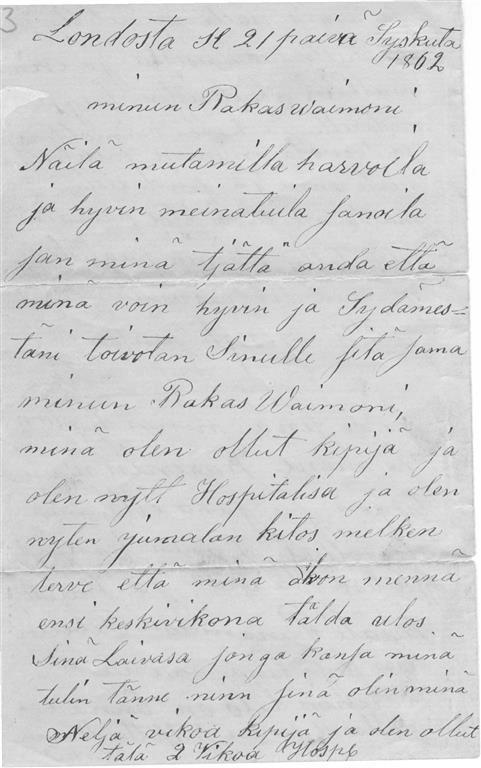 3
Londosta H 21 päivä Syskuta
1862
minun Rakas waimoni
Näilä mutamilla harvoila
ja hyvin meinatuila sanoila
san minä tjättä anda että
minä voin hyvin ja Sydämes=
täni toivotan Sinulle sitä sama
minun Rakas Waimoni,
minä olen ollut kipijä ja
olen nytt Hospitalisa ja olen
nyten jumalan kitos melken
terve että minä aivon mennä
ensi keskivikona tälda ulos
Sinä Laivasa jonga kansa minä
tulin tänne ninn sinä olin minä
Neljä vikoa kipijä ja olen ollut
tälä 2 Vikoa Hosp